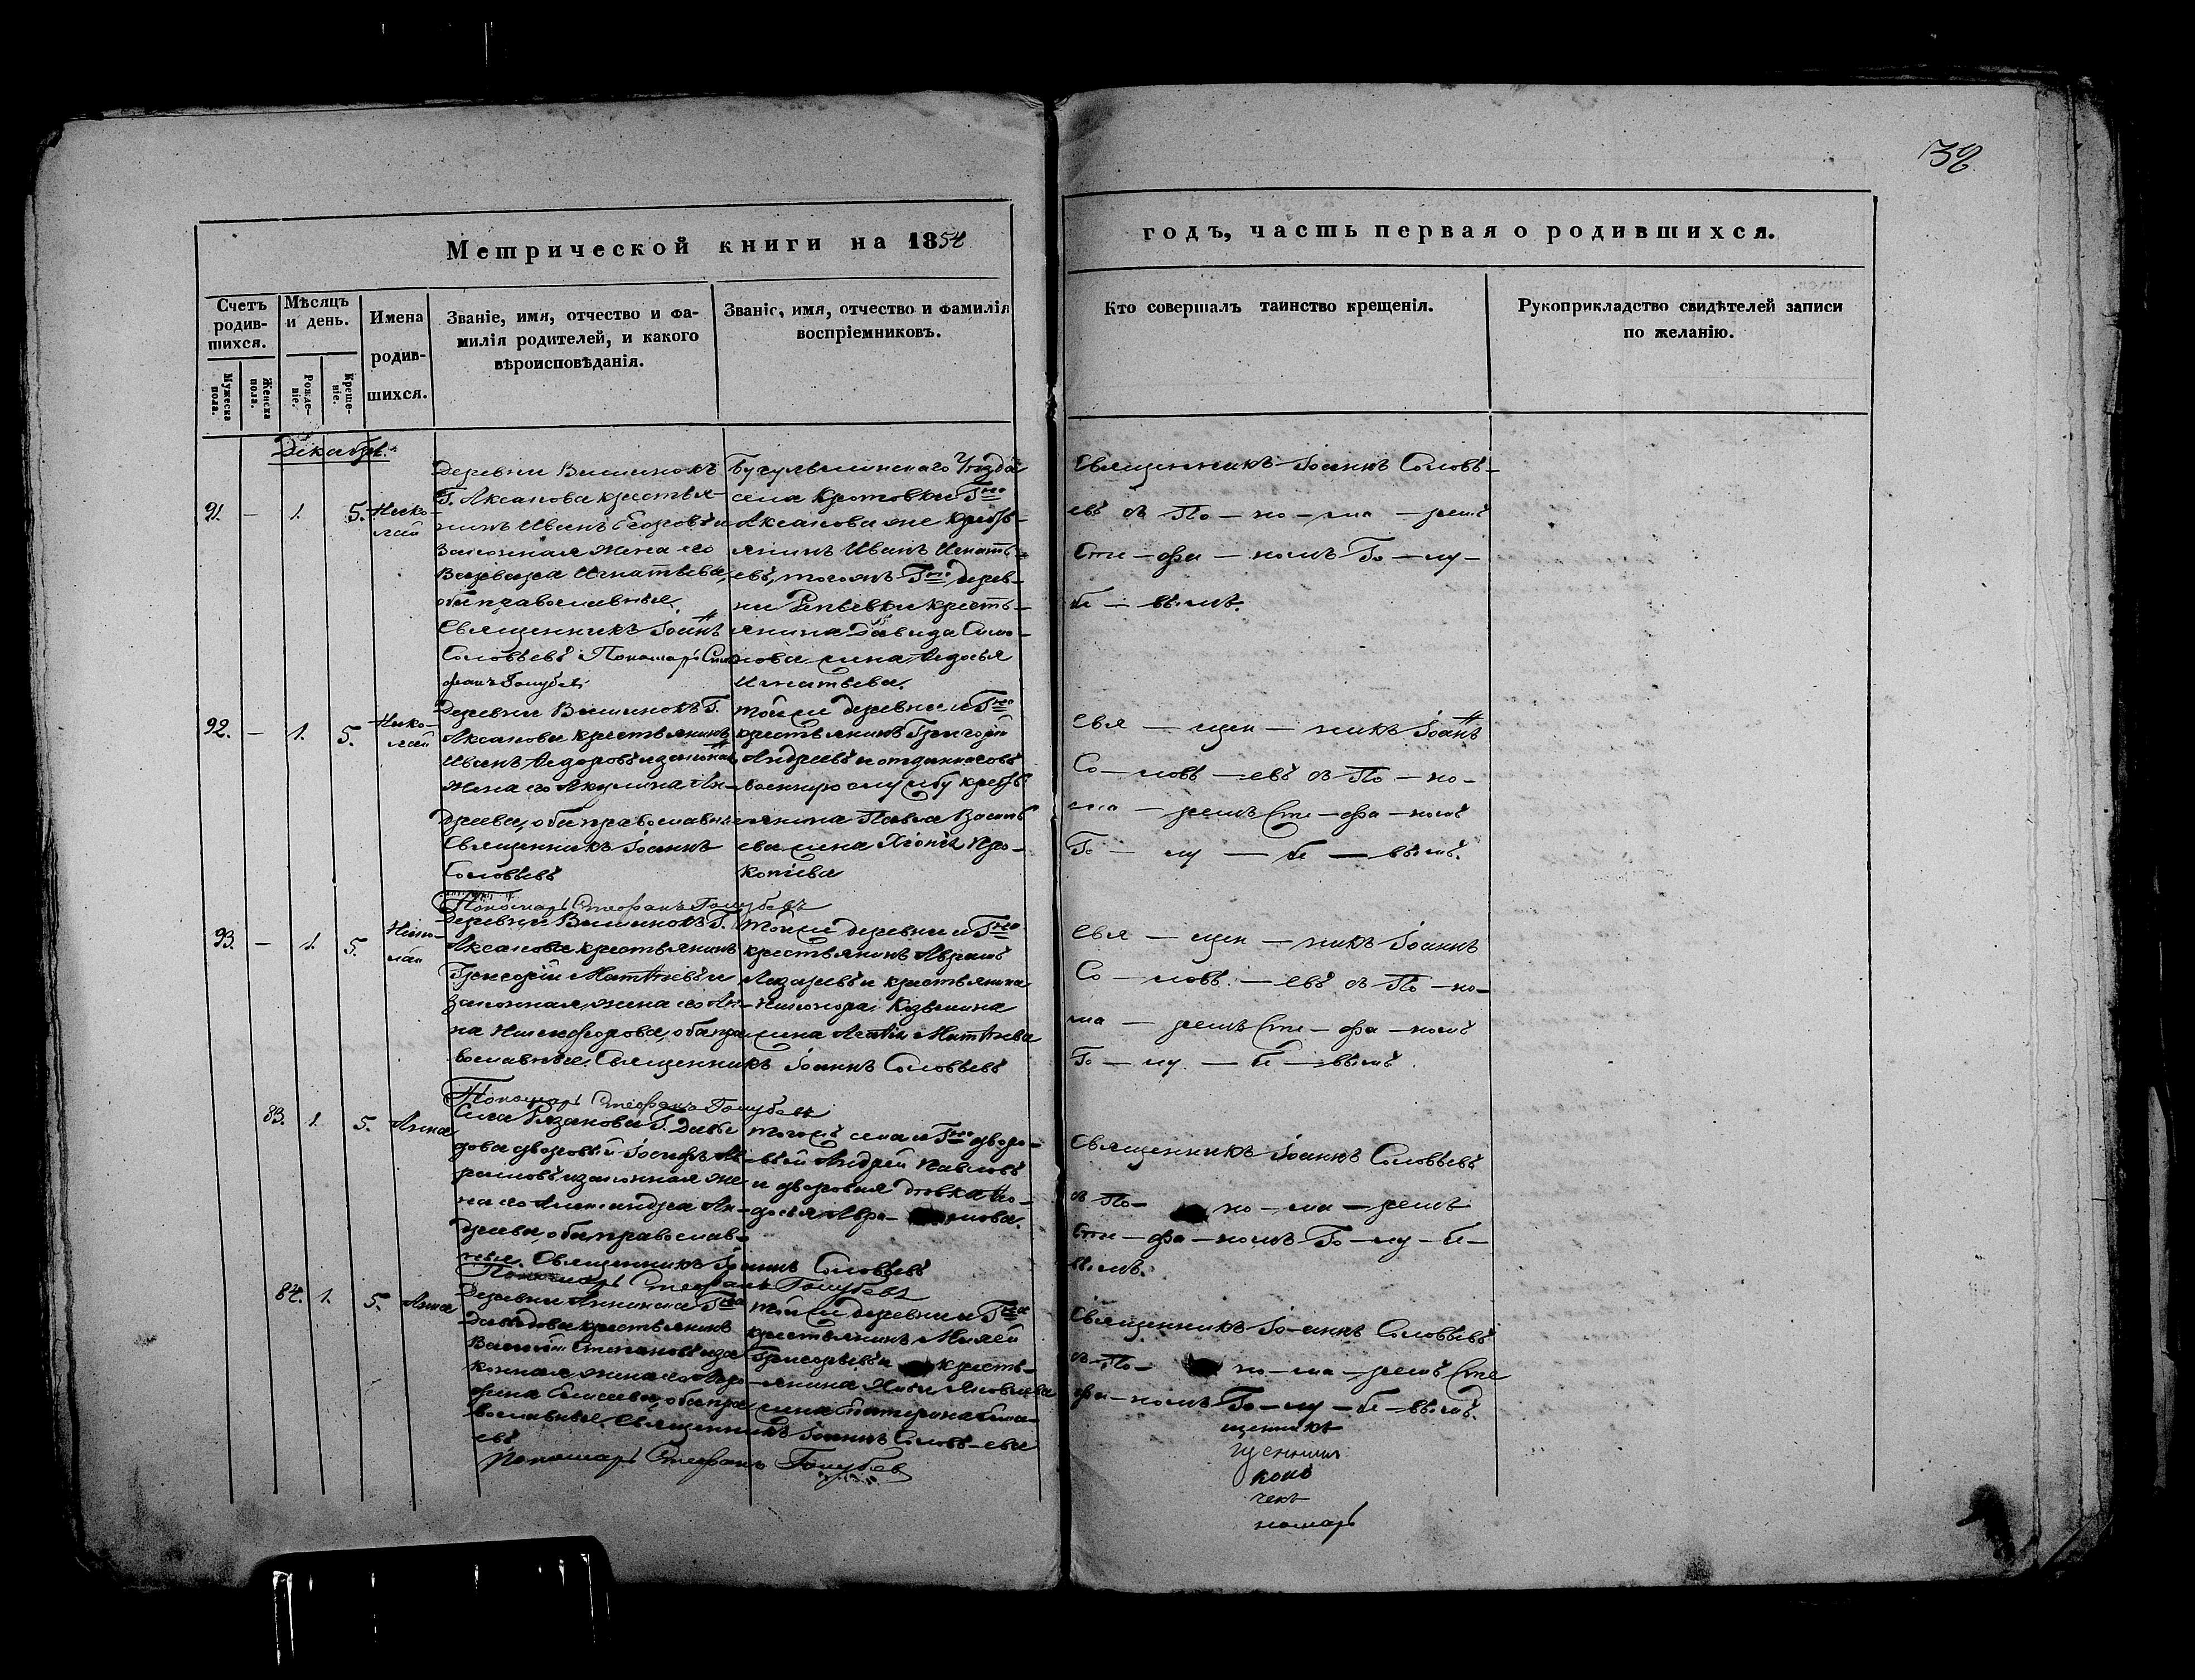 38
Метрической книги на 1854
годъ, часть первая о родившихся.
Счетъ родив-шихся.
Мѣсяцъ и день.
Имена родив-шихся.
Званіе, имя, отчество и фа-
милія родителей, и какого
вѣроисповѣданія.
Званіе, имя, отчество и фамилія
воспріемниковъ.
Кто совершалъ таинство крещенія.
Рукоприкладство свидѣтелей записи
по желанію.
Мужеска пола.
Женска пола.
Рожде-ніе.
Креще-ніе.
Декабрь.
91. — 1. 5. Нико-
лай
Деревни Вишнокъ
Г. Аксакова крестья-
нинъ Иванъ Егоровъ и
законная жена его
Варвара Игнатьева,
оба православные.
Священникъ Іоаннъ
Соловьевъ Пономарь Сте
фанъ Голубевъ
Бугульминскаго Уѣзда
села Кротовки Гна
Аксакова же кресть-
янинъ Иванъ Игнать-
евъ, того жъ Гна дерев-
ни Репьевки кресть-
янина Давида Симо-
нова жена Ѳедосья
Игнатьева.
Священникъ Іоаннъ Соловь-
евъ съ По-но-ма-ремъ
Сте-фа-номъ Го-лу-
бе-вымъ.
92. — 1. 5. Нико-
лай
Деревни Вишнокъ Г.
Аксакова крестьянинъ
Иванъ Ѳедоровъ и законная
жена его Акулина Ан-
дреева, оба православные
Священникъ Іоаннъ
Соловьевъ
Пономарь Стефанъ Голубевъ
той же деревни и Гна
крестьянинъ Григорій
Андреевъ и отданнаго въ
военную службу кресть
янина Павла Василь
ева жена Хіонія Про-
копіева
Свя-щен-никъ Іоаннъ
Со-ловь-евъ съ По-но-
ма-ремъ Сте-фа-номъ
Го-лу-бе-вымъ.
93. — 1. 5. Нико-
лай
Деревни Вишнокъ Г.
Аксакова крестьянинъ
Григорій Матѳѣевъ и
законная жена его Ан-
на Никифорова, оба пра
вославные. Священникъ Іоаннъ Соловьевъ
Пономарь Стефанъ Голубевъ
той же деревни и Гна
крестьянинъ Аврамъ
Лазаревъ и крестьянина
Никонора Козьмина
жена Агаѳія Матѳѣева
Свя-щен-никъ Іоаннъ
Со-ловь-евъ съ По-но-
ма-ремъ Сте-фа-номъ
Го-лу-бе-вымъ.
83. 1. 5. Анна
Села Рязанова Г. Давы
дова дворовый Іосифъ Ав-
рамовъ и законная же
на его Александра Ан-
дреева, оба православ-
ные. Священникъ Іоаннъ Соловьевъ
Пономарь Стефанъ Голубевъ
того жъ села и Гна дворо-
вый Андрей Павловъ
и дворовая дѣвка Ѳе-
досья Авра-мова.
Священникъ Іоаннъ Соловьевъ
съ По-но-ма-ремъ
Сте-фа-номъ Го-лу-бе-
вымъ.
84. 1. 5. Анна
Деревни Аннинска Гна
Давыдова крестьянинъ
Василій Степановъ и за
конная жена его Агра-
фена Елисеева, оба пра
вославные. Священникъ Іоаннъ Соловь-
евъ
Пономарь Стефанъ Голубев
той же деревни и Гна
крестьянинъ
Григорьевъ и кресть-
янина Яковлева
жена Катерина
Священникъ Іо-аннъ Соловьевъ
съ По-но-ма-ремъ Сте
фа-номъ Го-лу-бе-вымъ.
щенникъ
номарь